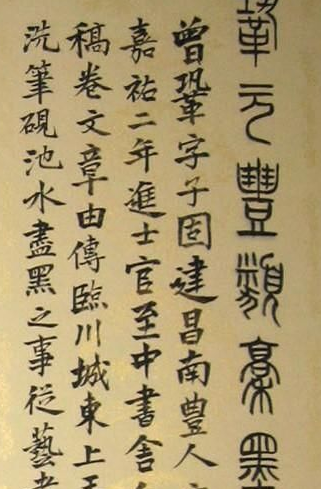 鞏元豐類稾墨
曾鞏字子固建昌南豐人
嘉祐二年進士官至中書舍
稿卷文章由傳臨川城東上
洗筆硯池水盡黑之事從藝